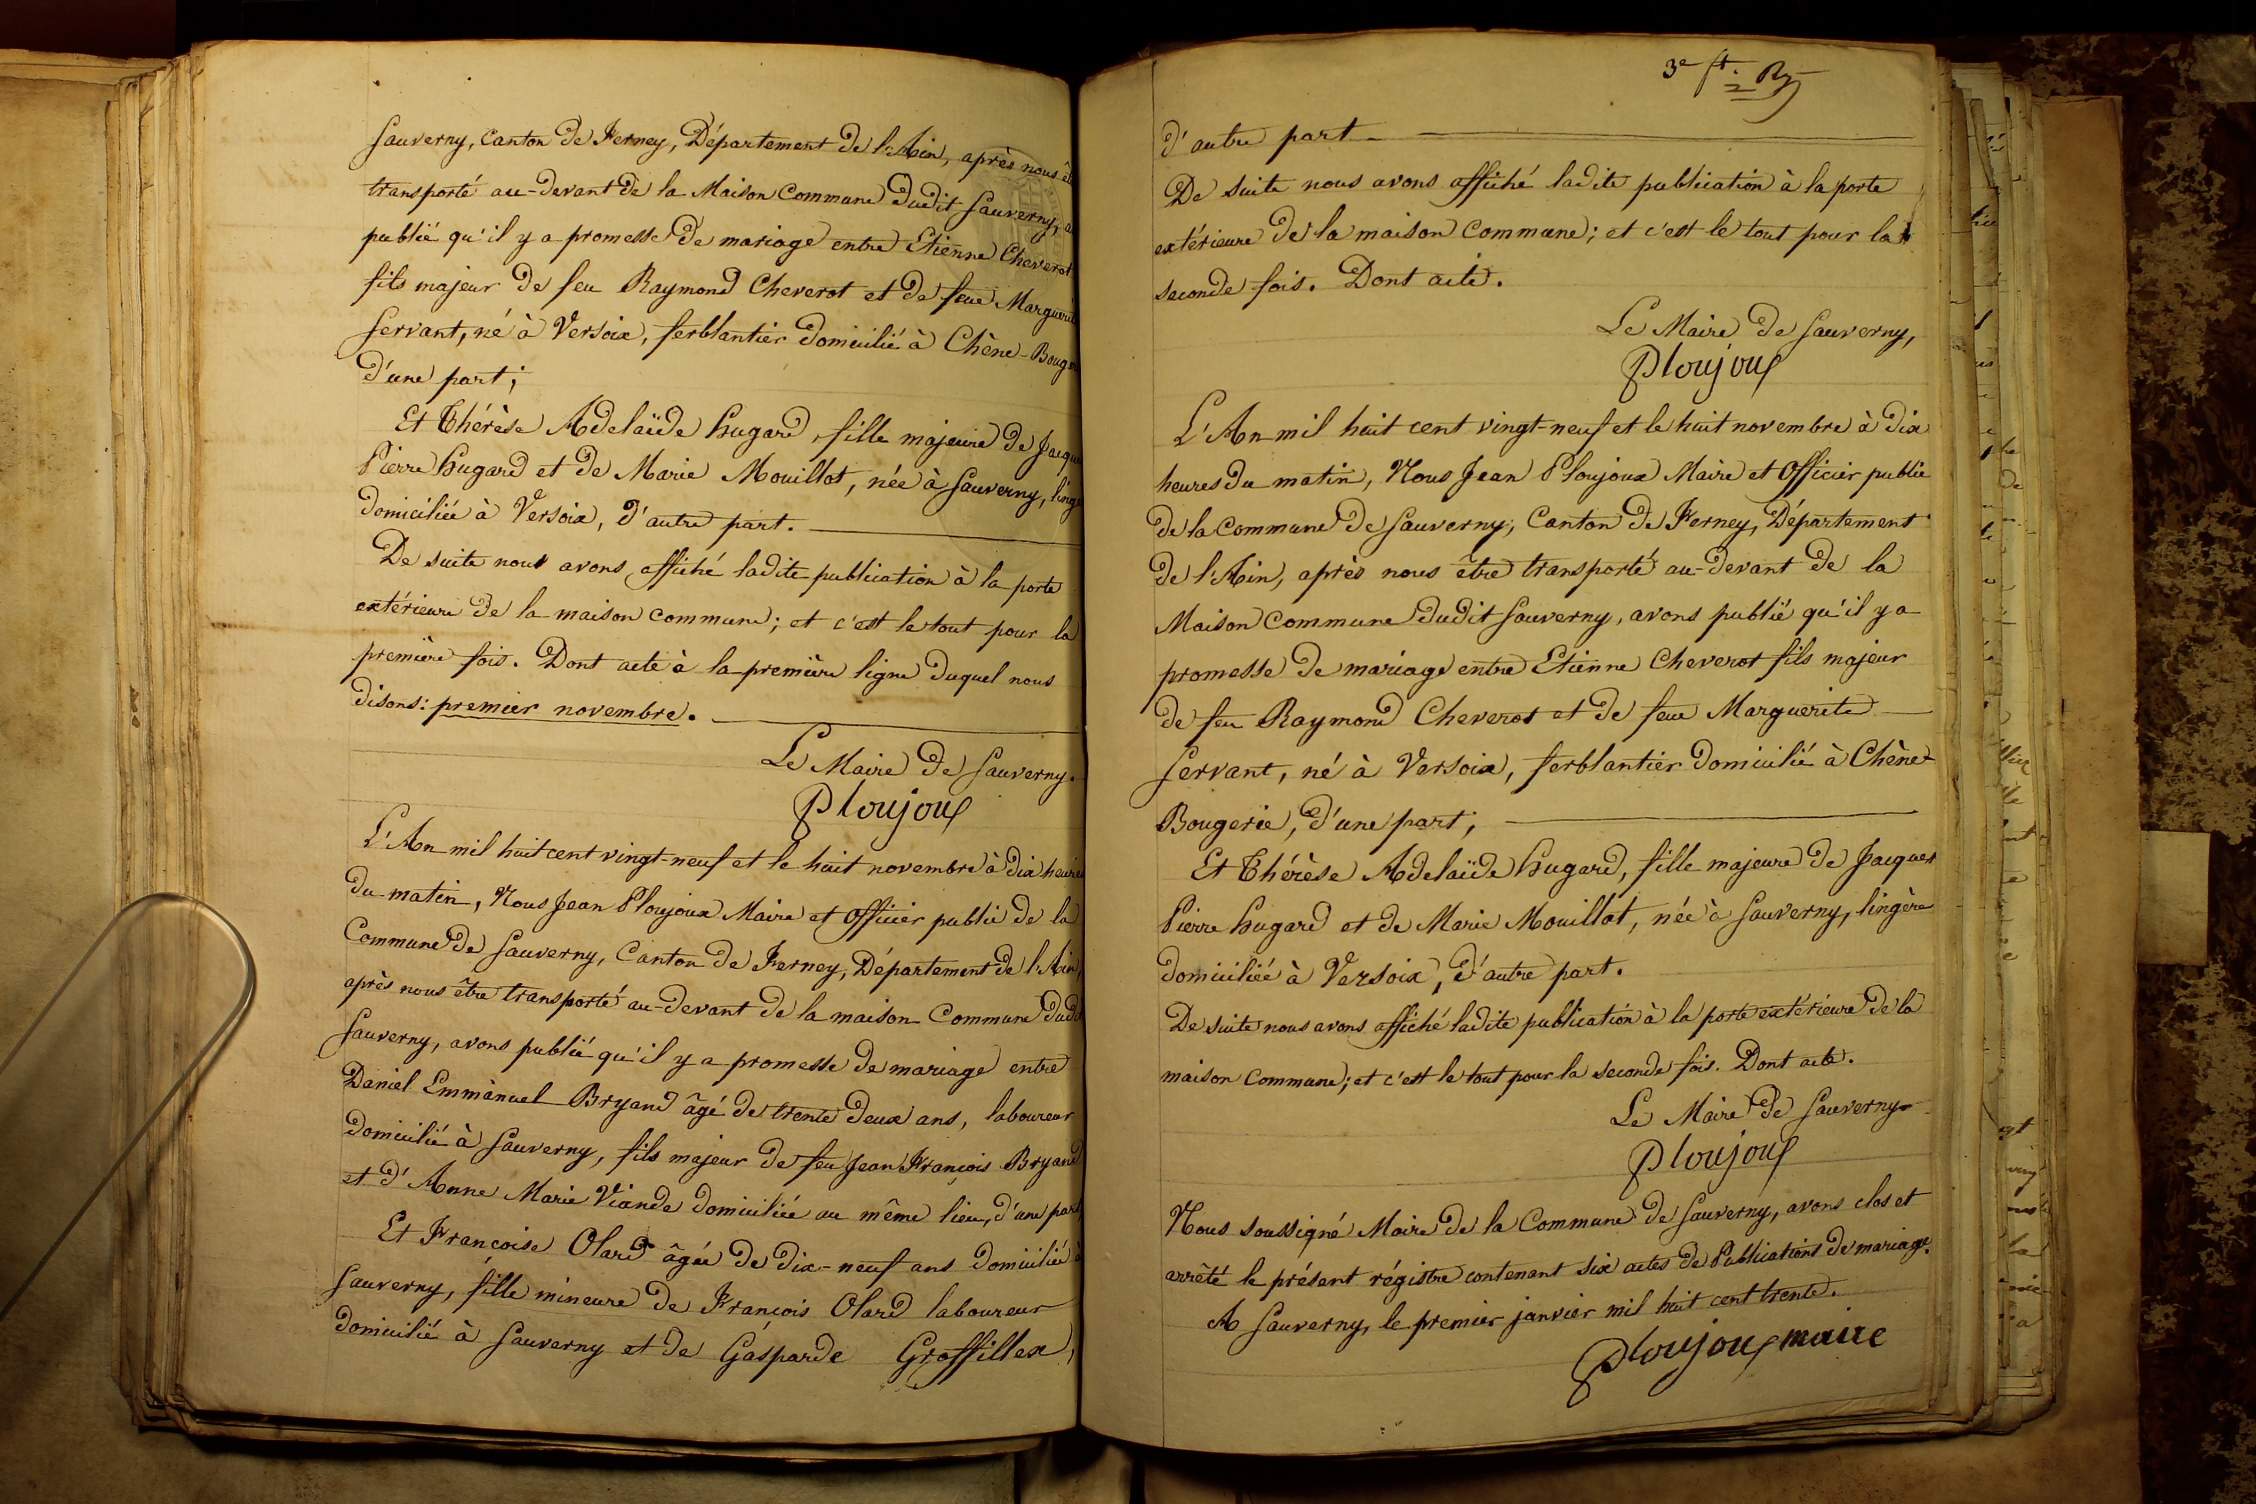 Sauverny, Canton de Ferney, Département de l'Ain, après nous
transporté au-devant de la Maison Commune dudit Sauverny,
publié qu'il y a promesse de mariage entre Etienne Cheverot
fils majeur de feu Raymond Cheverot et de feue Marguerite
Servant, né à Versoix, ferblantier domicilié à Chêne-Boug
d'une part;
Et Thérèse Adelaïde Hugard, fille majeure de Jacques
Pierre Hugard et de Marie Mouillot, née à Sauverny, ling
domiciliée à Versoix, d'autre part.
De suite nous avons affiché ladite publication à la porte
extérieure de la maison commune; et c'est le tout pour la
première fois. Dont acte à la première ligne duquel nous
disons: premier novembre.
Le Maire de Sauverny.
Ploujoux
L'An mil huit cent vingt-neuf et le huit novembre à dix heures
du matin, Nous Jean Ploujoux Maire et Officier public de la
Commune de Sauverny, Canton de Ferney, Département de l'Ain,
après nous être transporté au-devant de la maison Commune dudit
Sauverny, avons publié qu'il y a promesse de mariage entre
Daniel Emmànuel Bryand âgé de trente deux ans, laboureur
domicilié à Sauverny, fils majeur de feu Jean François Bryand
et d'Anne Marie Viande domiciliée au même lieu, d'une part,
Et Françoise Olard âgée de dix-neuf ans domiciliée à
Sauverny, fille mineure de François Olard laboureur
domicilié à Sauverny et de Gásparde Groffillex,
3e ft.
d'autre part
De suite nous avons affiché ladite publication à la porte
extérieure de la maison Commune; et c'est le tout pour la
seconde fois. Dont acte.
Le Maire de Sauverny,
Ploujoux
L'An mil huit cent vingt-neuf et le huit novembre à dix
heures du matin, Nous Jean Ploujoux Maire et Officier public
de la Commune de Sauverny, Canton de Ferney, Département
de l'Ain, après nous être transporté au-devant de la
Maison Commune dudit Sauverny, avons publié qu'il y a
promesse de mariage entre Etienne Cheverot fils majeur
de feu Raymond Cheverot et de feue Marguerite
Servant, né à Versoix, ferblantier domicilié à Chêne-
Bougerie, d'une part;
Et Thérèse Adelaïde Hugard, fille majeure de Jacques
Pierre Hugard et de Marie Mouillot, née à Sauverny, lingère
domiciliée à Versoix, d'autre part.
De suite nous avons affiché ladite publication à la porte extérieure de la
maison Commune; et c'est le tout pour la seconde fois. Dont acte.
Le Maire de Sauverny
Ploujoux
Nous soussigné Maire de la Commune de Sauverny, avons clos et
arrêté le présent régistre contenant six actes de Publications de mariage.
A Sauverny, le premier janvier mil huit cent trente.
Ploujoux maire